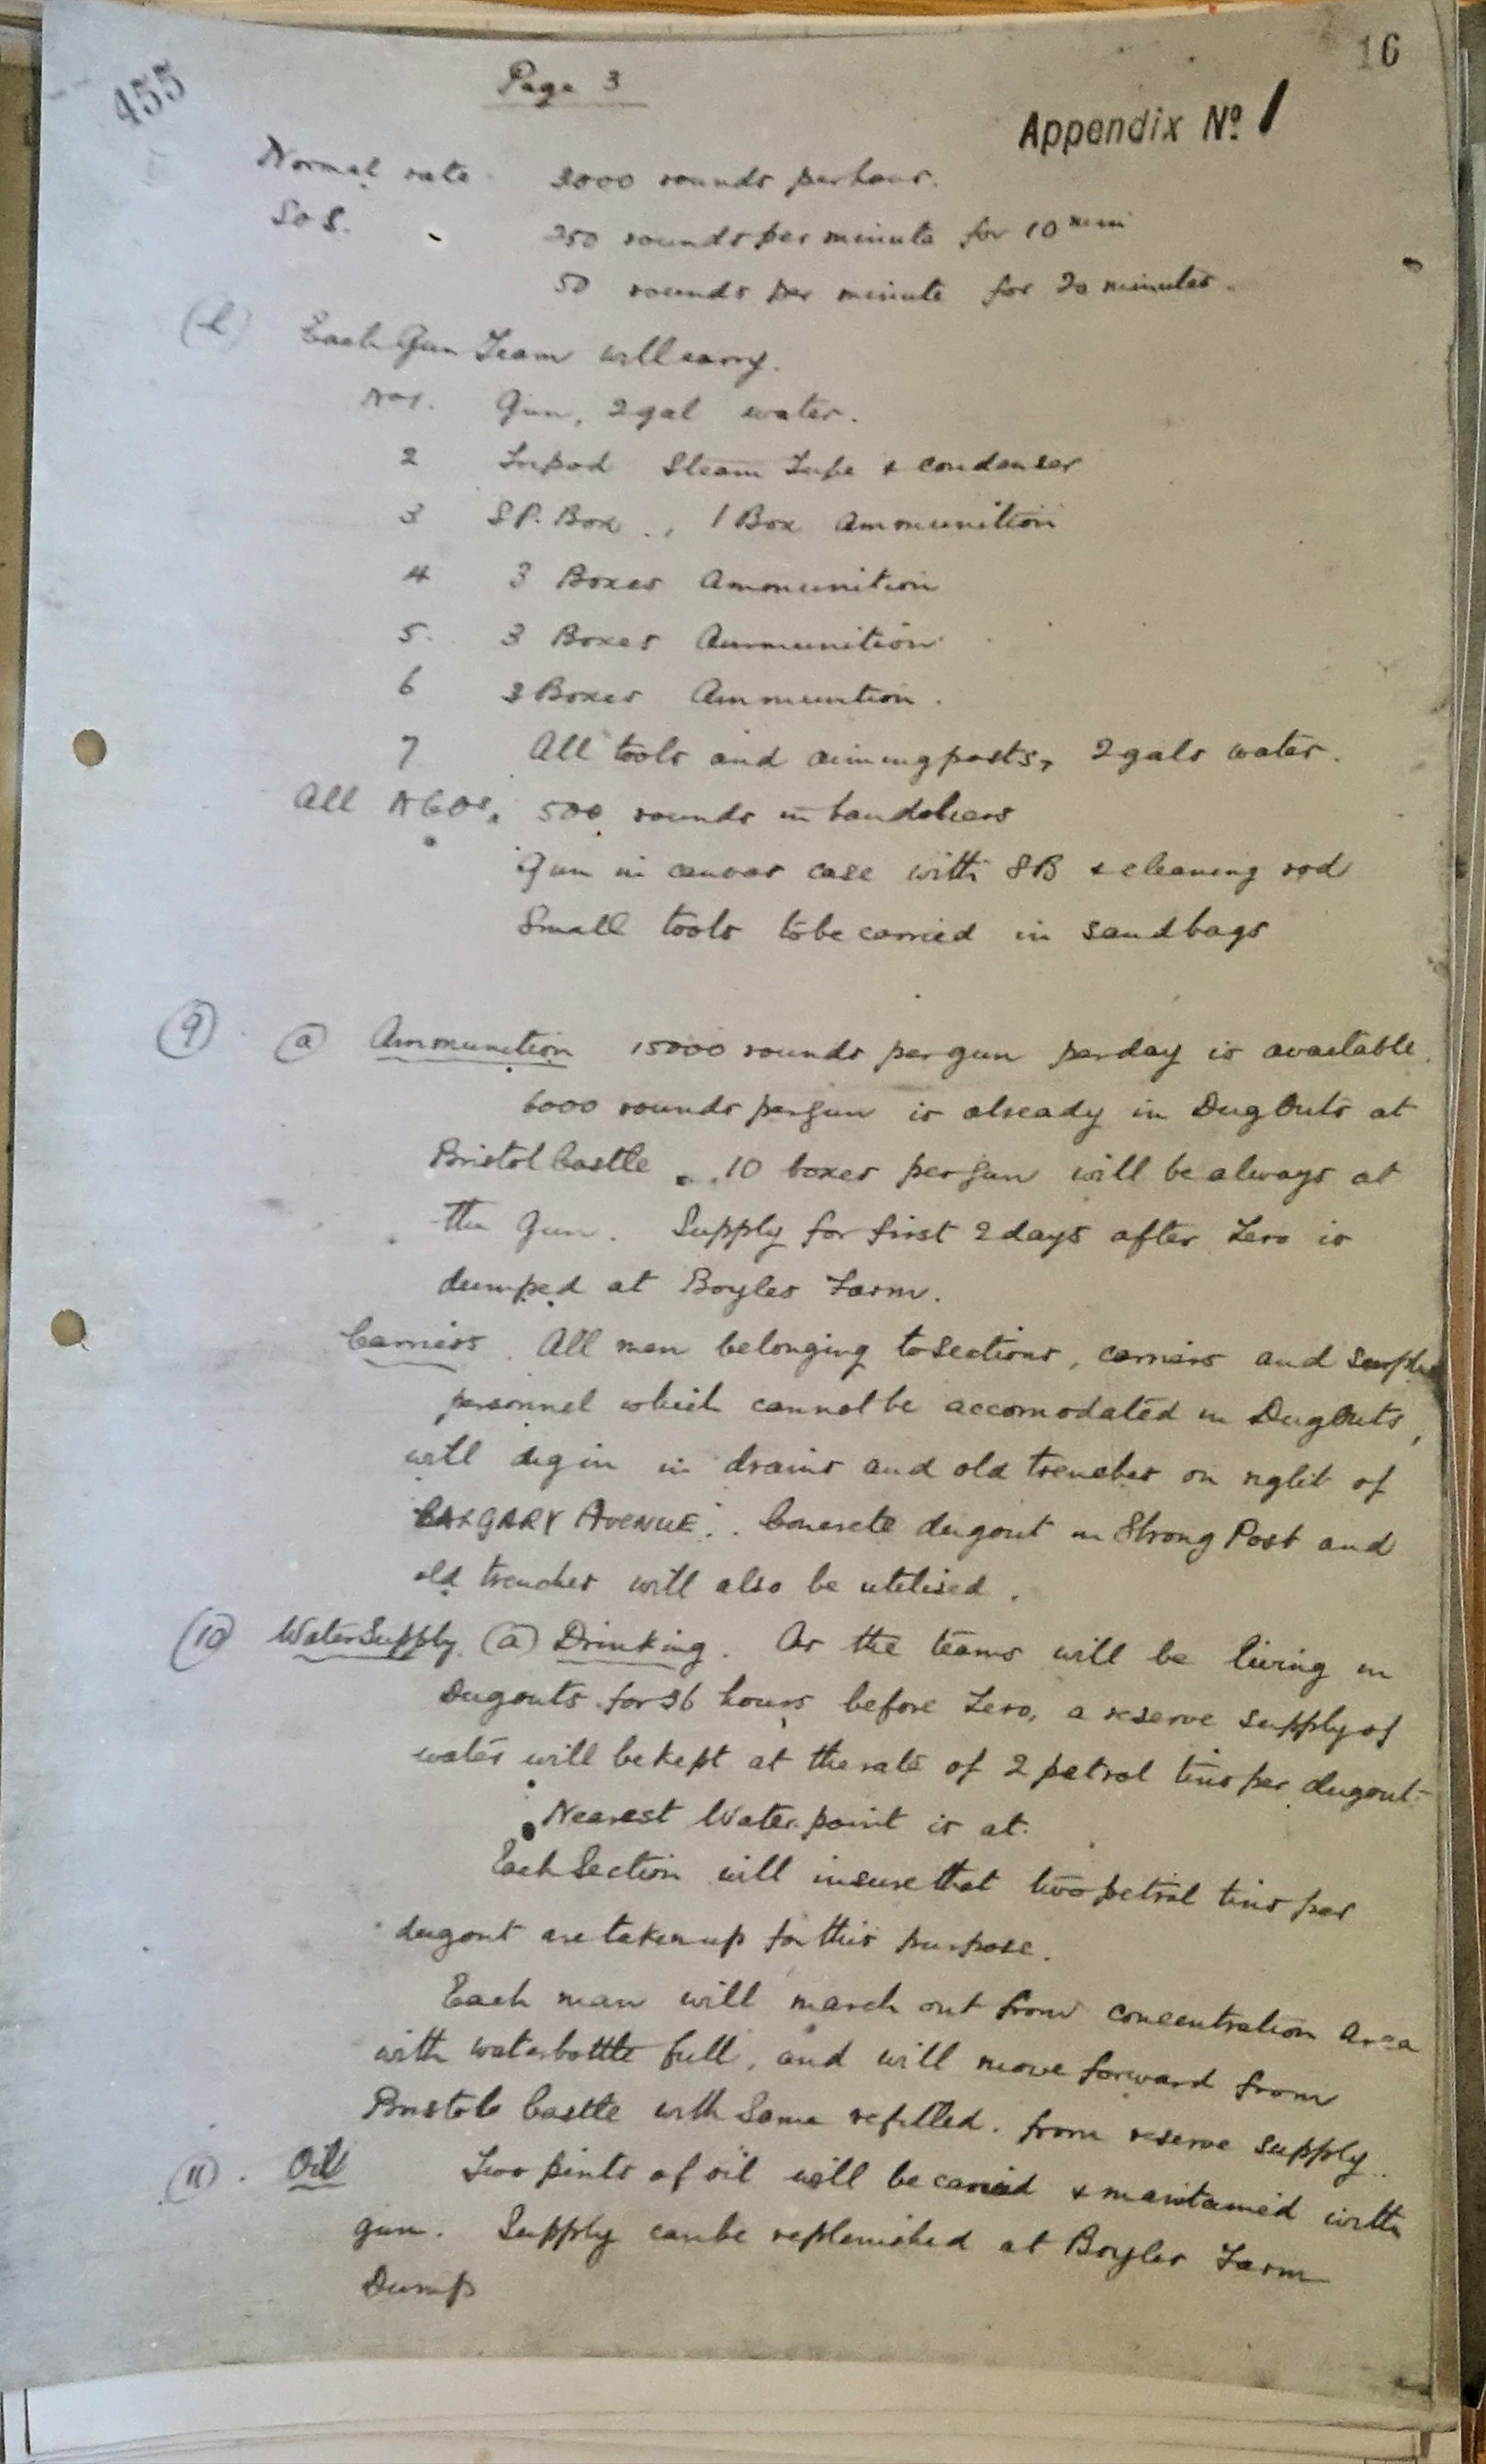 16
455
Page 3
Appendix No 1
Normal rate 3000 rounds per hour.
SoS. 250 rounds per minute for 10 min
50 rounds per minute for 20 minutes.
Each Gun Team will carry.
No 1. Gun, 2 gal water.
2 Tripod Steam Tube & condenser
3 SP. Box., 1 Box Ammunition
4 3 Boxes Ammunition
5. 3 Boxes Ammunition
6 3 Boxes Ammuntion.
7 All tools and aiming posts, 2 gals water.
All NCOs, 500 rounds in bandoliers
Gun in canvas case with SB & cleaning rod
Small tools to be carried in sandbags
(9) (a) Ammunition 15000 rounds per gun per day is available.
6000 rounds per gun is already in DugOuts at
Bristol Castle. 10 boxes per gun will be always at
the Gun. Supply for first 2 days after Zero is
dumped at Boyles Farm.
Carriers. All men belonging to Sections, carriers and surplus
personnel which cannot be accomodated in DugOuts,
will dig in in drains and old trenches on right of
CALGARY AVENUE. Concrete dugout in Strong Post and
old trenches will also be utilised.
(10) Water Supply (a) Drinking. As the teams will be living in
Dugouts for 36 hours before Zero, a reserve supply of
water will be kept at the rate of 2 petrol tins per dugout.
Nearest Water point is at.
Each Section will insure that two petrol tins per
dugout are taken up for this purpose.
Each man will march out from concentration Area
with waterbottle full, and will move forward from
Bristol Castle with Same refilled. from reserve supply.
(11). Oil Two pints of oil will be carried & maintained with
gun. Supply can be replenished at Boyles Farm
Dump